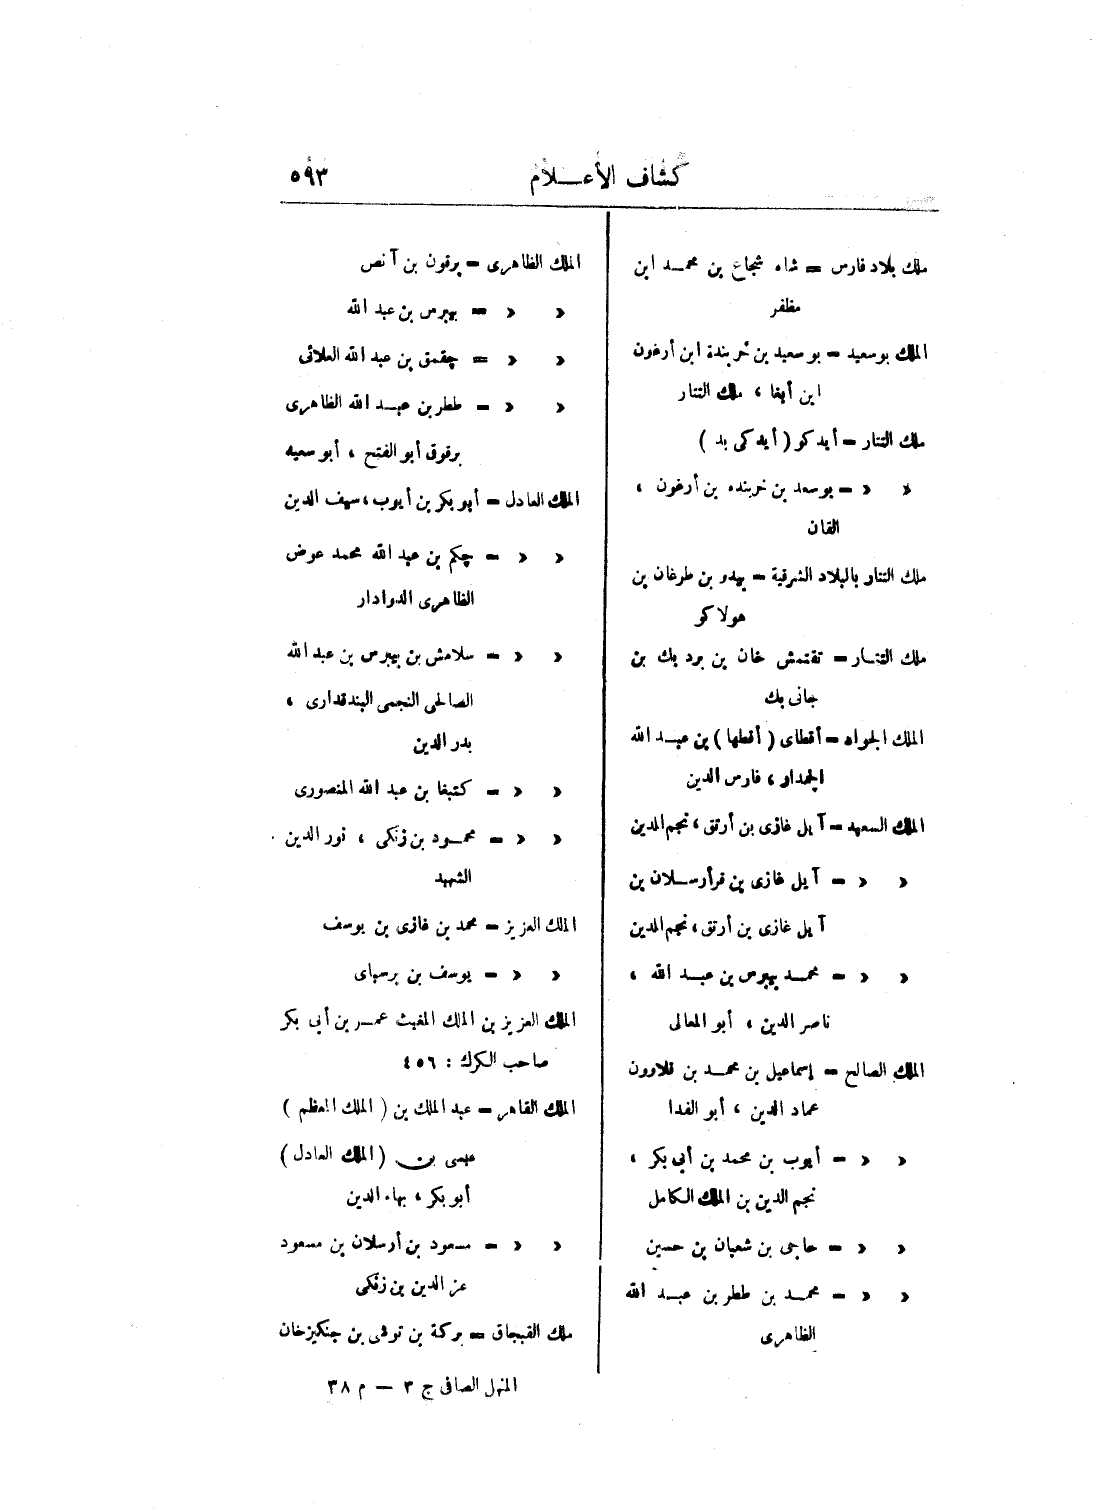 كشاف الأعلام
٥٩٣
ملك بلاد فارس = شاه شجاع بن محمد ابن
مظفر
الملك بوسعيد = بوسعيد بن خربندة ابن أرغون
ابن أبغا ، ملك التتار
ملك التتار = أيدكو ( أيدكى بد )
« « = بوسعد بن خربنده بن أرغون ،
القان
ملك التتار بالبلاد الشرقية = بيدو بن طرغان بن
هولاكو
ملك التتار = تقتمش خان بن برد بك بن
جانى بك
الملك الجواد = أقطاى ( أقطها ) بن عبد الله
الجمدار ، فارس الدين
الملك السعيد = آيل غازى بن أرتق ، نجم الدين
« « = آيل غازى بن قرأرسلان بن
آيل غازى بن أرتق ، نجم الدين
« « = محمد بيبرس بن عبد الله ،
ناصر الدين ، أبو المعالى
الملك الصالح = إسماعيل بن محمد بن قلاوون
عماد الدين ، أبو الفدا
« « = أيوب بن محمد بن أبى بكر ،
نجم الدين بن الملك الكامل
« « = حاجى بن شعبان بن حسين
« « = محمد بن ططر بن عبد الله
الظاهرى
الملك الظاهرى = برقون بن آنص
« « = بيبرس بن عبد الله
« « = چقمق بن عبد الله العلائى
« « = ططر بن عبد الله الظاهرى
برقوق أبو الفتح ، أبو سعيه
الملك العادل = أبو بكر بن أيوب ، سيف الدين
« « = چكم بن عبد الله محمد عوض
الظاهرى الدوادار
« « = سلامش بن بيبرس بن عبد الله
الصالحى النجمى البندقدارى ،
بدر الدين
« « = كتبغا بن عبد الله المنصورى
« « = محمود بن زنكى ، نور الدين
الشهيد
الملك العزيز = محمد بن غازى بن يوسف
« « = يوسف بن برسباى
الملك العزيز بن الملك المغيث عمر بن أبى بكر
صاحب الكرك : ٤٥٦
الملك القاهر = عبد الملك بن ( الملك المعظم )
عيسى بن ( الملك العادل )
أبو بكر ، بهاء الدين
« « = مسعود بن أرسلان بن مسعود
عز الدين بن زنكى
ملك القبجاق = بركة بن توشى بن جنكيزخان
المنهل الصافى ج ٣ — م ٣٨